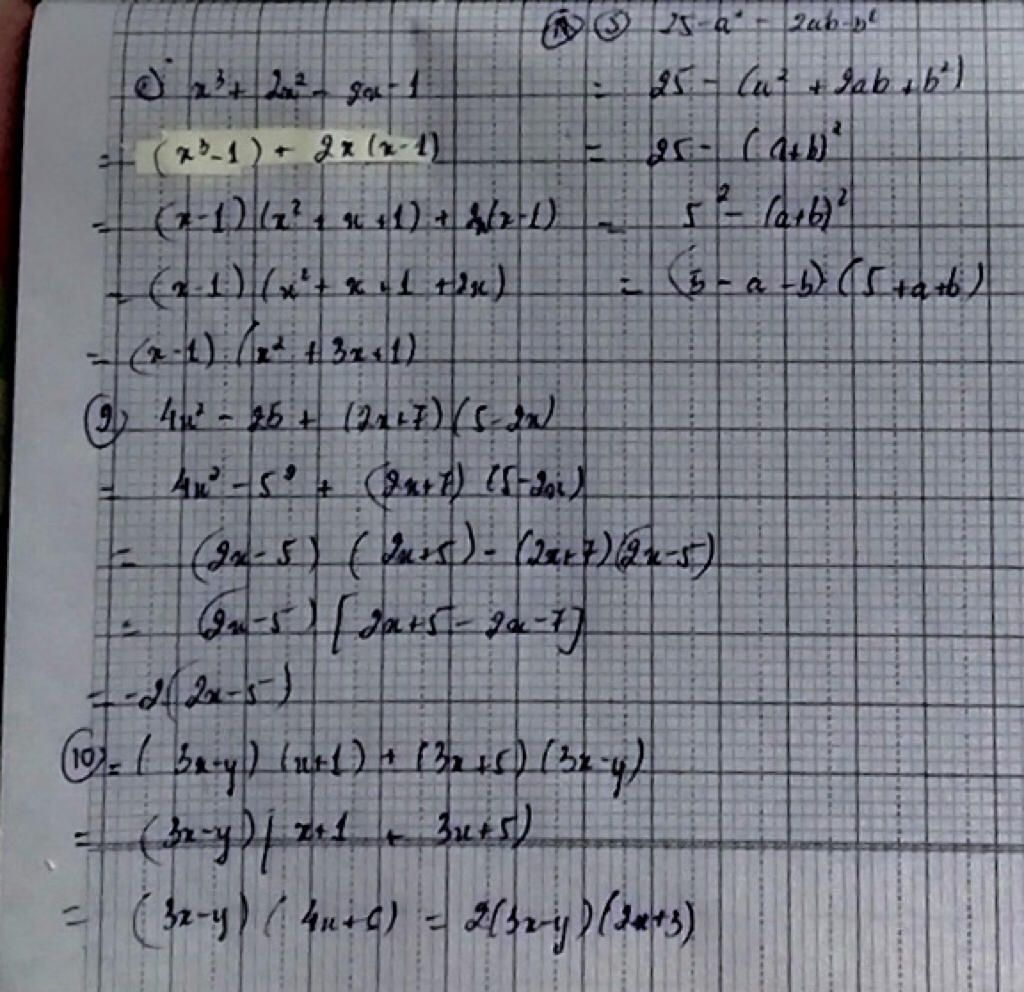 c) x³ + 2x² - 2x - 1
= (x³-1) + 2x(x-1)
= (x-1)(x² + x + 1) + 2x(x-1)
= (x-1)(x² + x + 1 + 2x)
= (x-1)(x² + 3x + 1)
9) 4x² - 25 + (2x+7)(5-2x)
= 4x² - 5² + (2x+7)(5-2x)
= (2x-5)(2x+5) - (2x+7)(2x-5)
= (2x-5)[2x+5 - 2x-7]
= -2(2x-5)
10) = (3x-y)(x+1) + (3x+5)(3x-y)
= (3x-y)(x+1 + 3x+5)
= (3x-y)(4x+6) = 2(3x-y)(2x+3)
5) 25-a² - 2ab-b²
= 25 - (a² + 2ab + b²)
= 25 - (a+b)²
= 5² - (a+b)²
= (5 - a - b)(5 + a + b)